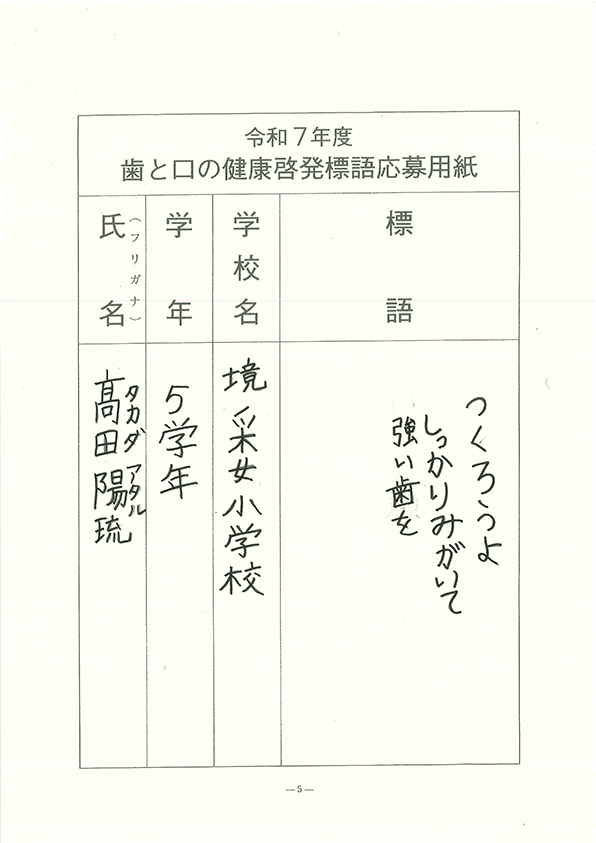 令和７年度
歯と口の健康啓発標語応募用紙
標語
つくろうよ
しっかりみがいて
強い歯を
学校名
境采女小学校
学年
5学年
氏名
（フリガナ）
タカダ アタル
髙田 陽琉
—5—